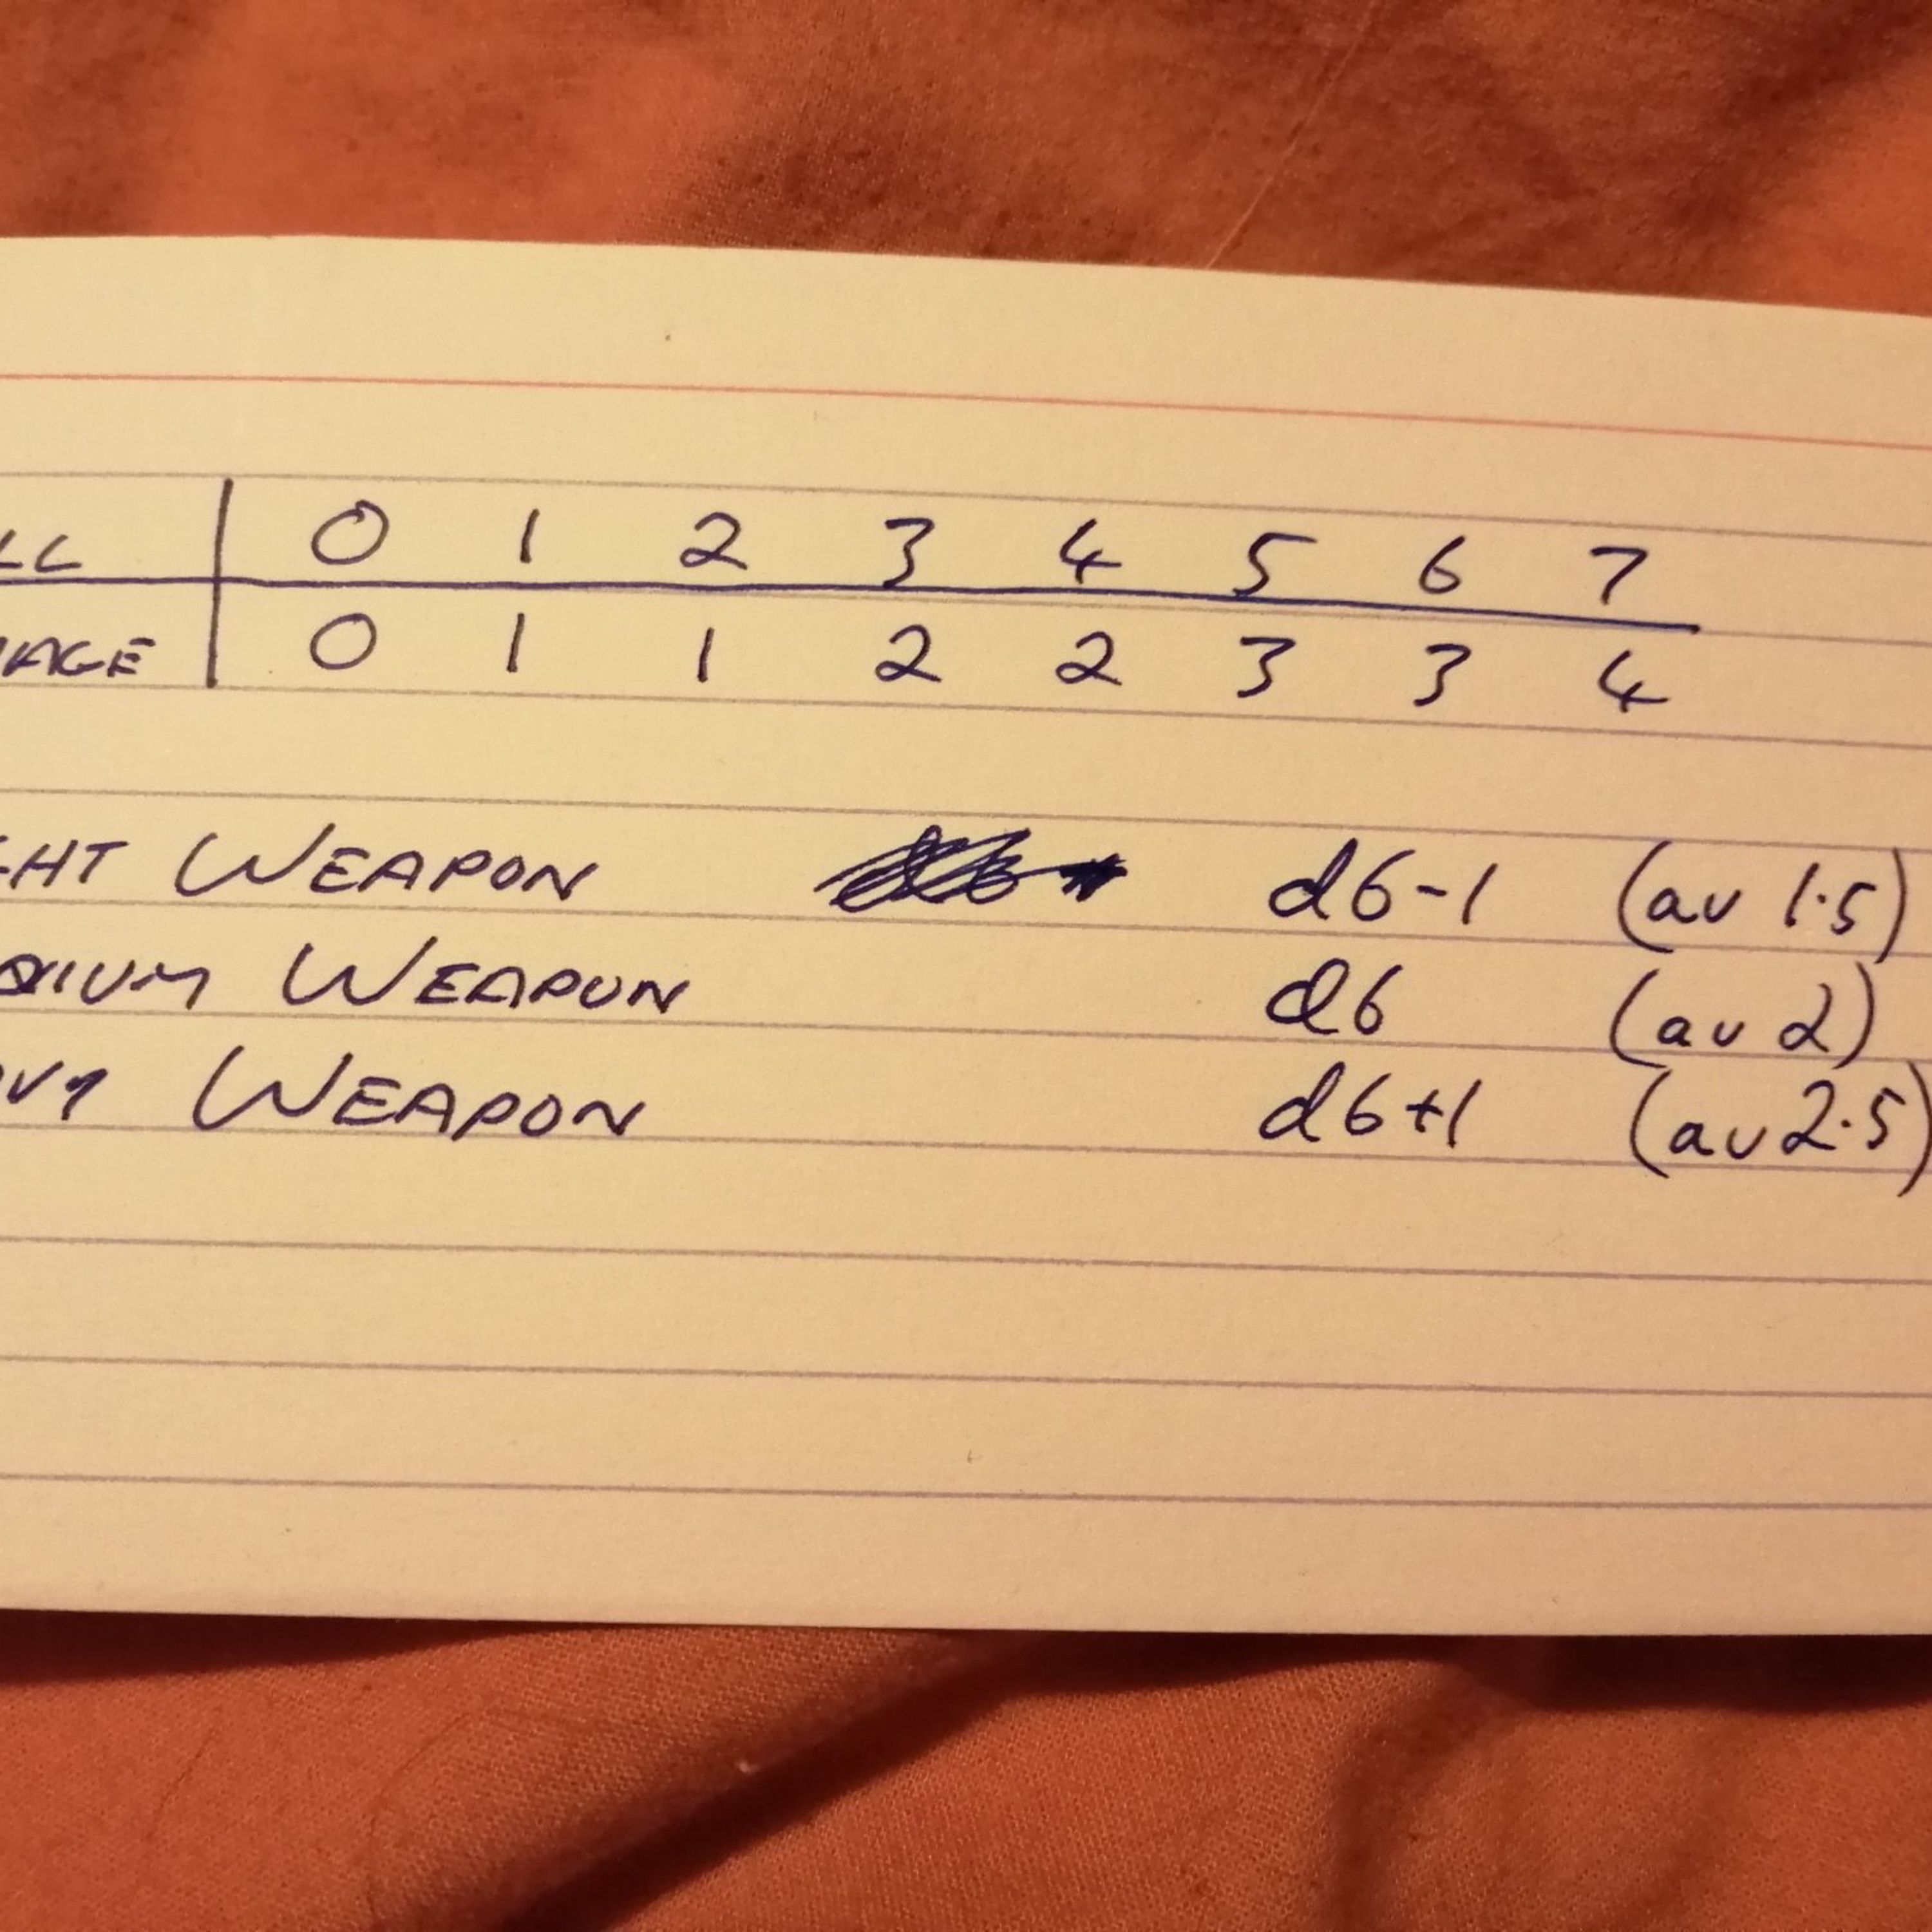 LL 0 1 2 3 4 5 6 7
MAGE 0 1 1 2 2 3 3 4
GHT WEAPON d6-1 (av 1.5)
DIUM WEAPON d6 (av 2)
AVY WEAPON d6+1 (av 2.5)